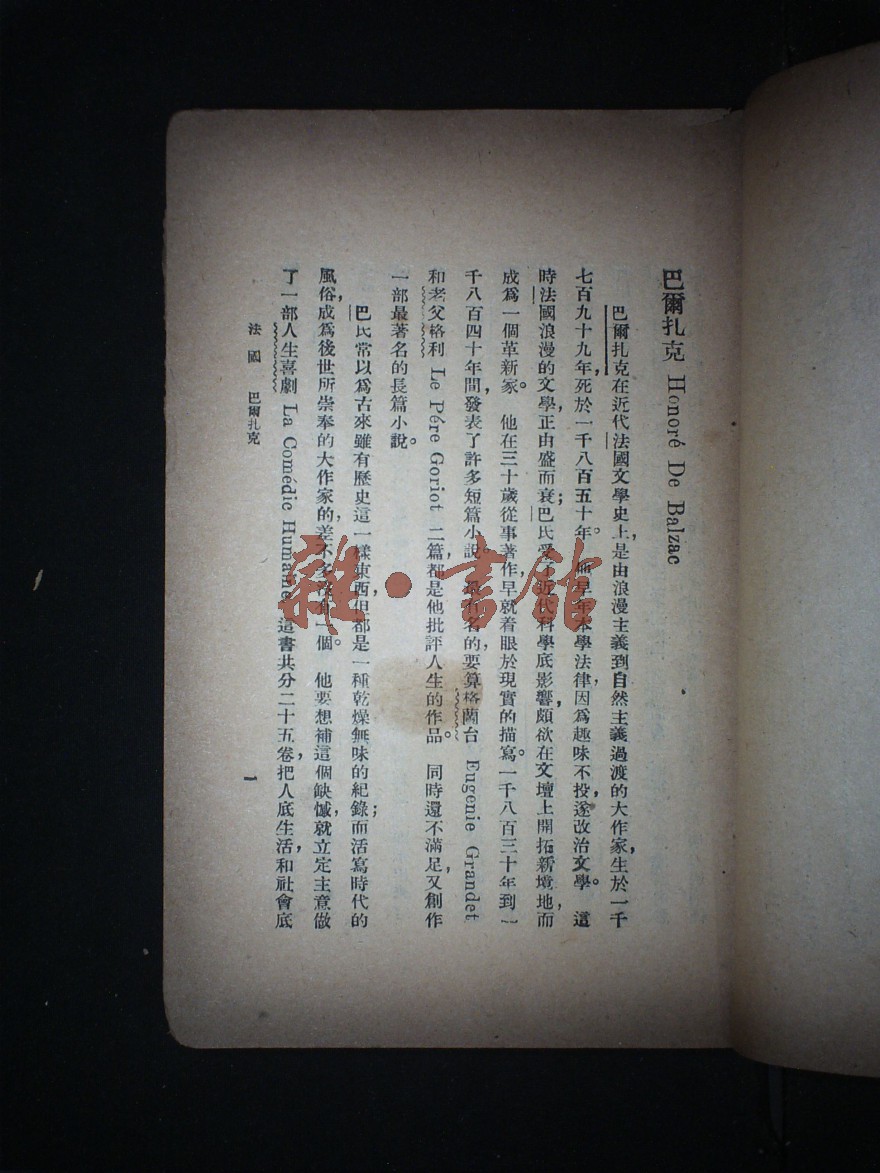 巴爾扎克 Honoré De Balzac
巴爾扎克在近代法國文學史上，是由浪漫主義到自然主義過渡的大作家，生於一千
七百九十九年，死於一千八百五十年。他早年本學法律，因爲趣味不投，遂改治文學。這
時法國浪漫的文學，正由盛而衰；巴氏受了近代科學底影響，頗欲在文壇上開拓新境地，而
成爲一個革新家。他在三十歲從事著作，早就着眼於現實的描寫。一千八百三十年到一
千八百四十年間，發表了許多短篇小說。最有名的，要算格蘭台 Eugenie Grandet
和老父格利 Le Pére Goriot 二篇，都是他批評人生的作品。同時還不滿足，又創作
一部最著名的長篇小說。
巴氏常以爲古來雖有歷史這一樣東西，但都是一種乾燥無味的紀錄；而活寫時代的
風俗，成爲後世所崇奉的大作家的，差不多沒有一個。他要想補這個缺憾，就立定主意做
了一部人生喜劇 La Comédie Humaine 這書共分二十五卷，把人底生活，和社會底
法國 巴爾扎克
一
雜·書館